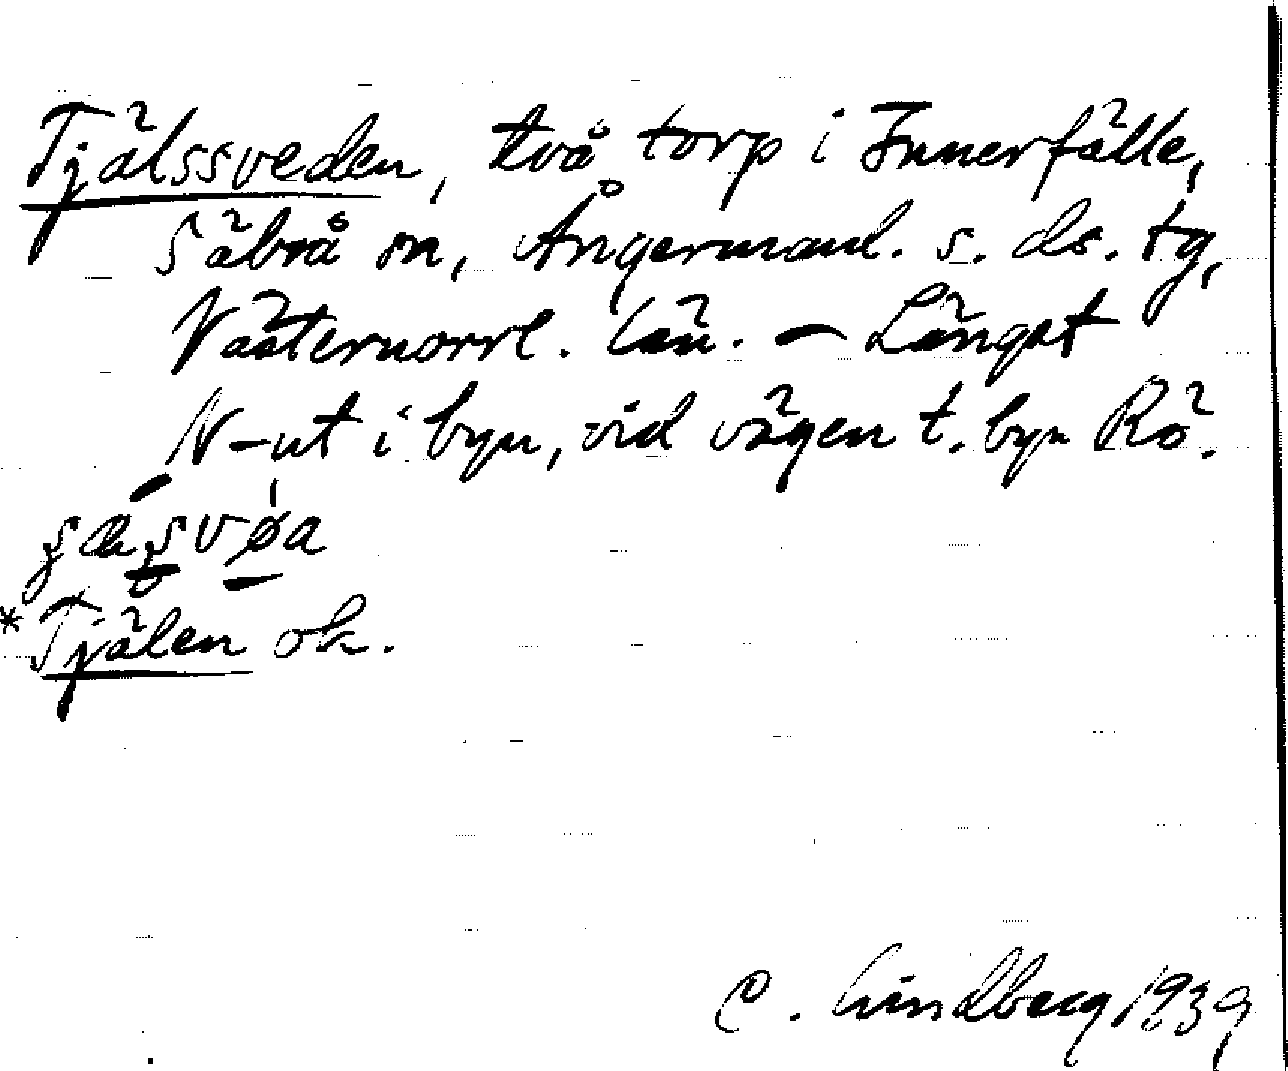 Tjälssveden, två torp i Innerfälle,
Säbrå sn, Ångermanl. s. ds. tg,
Västernorrl. län. – Längst
N-ut i byn, vid vägen t. byn Rö.
*Tjälen ok.
C. Lindberg 1939